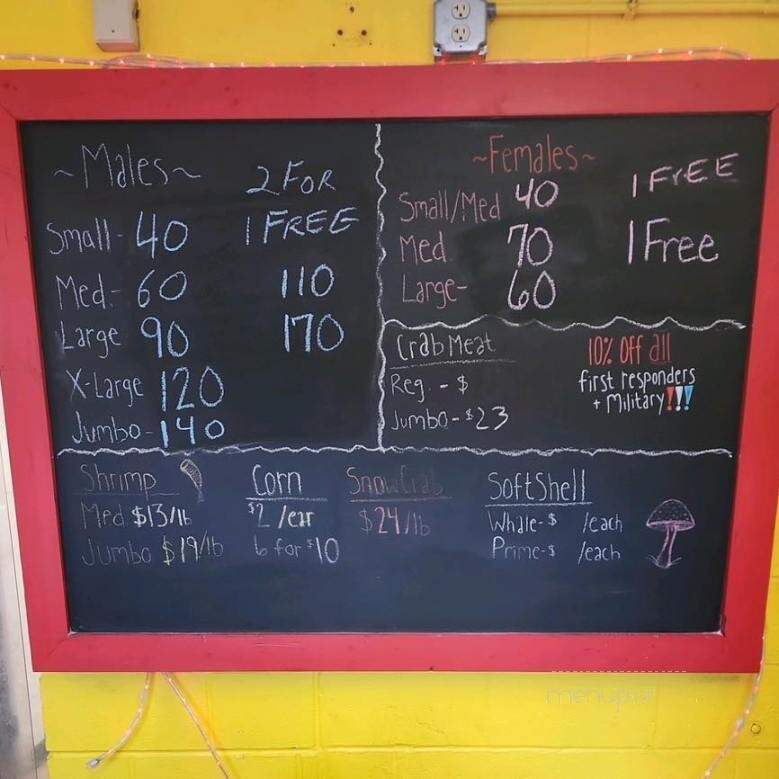 ~Males~
2 FOR
Small - 40 1 FREE
Med.- 60 110
Large 90 170
X-Large 120
Jumbo- 140
~Females~
Small/Med 40 1 FrEE
Med. 70 1 Free
Large- 60
Crab Meat
Reg. - $
Jumbo- $23
10% Off all
first responders
+ Military!!!!
Shrimp
Med $13/lb
Jumbo $19/lb
Corn
$2 /ear
6 for $10
Snow Crab
$24/lb
SoftShell
Whale-$ /each
Prime-$ /each
menupix